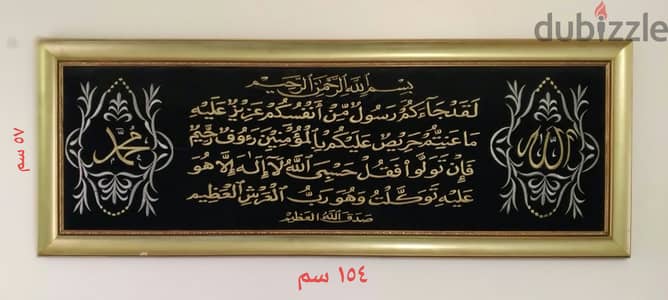 dubizzle
بسم الله الرحمن الرحيم
الله
لقد جاءكم رسول من أنفسكم عزيز عليه
ما عنتم حريص عليكم بالمؤمنين رءوف رحيم
فإن تولوا فقل حسبي الله لا إله إلا هو
عليه توكلت وهو رب العرش العظيم
صدق الله العظيم
محمد
٥٧ سم
١٥٤ سم